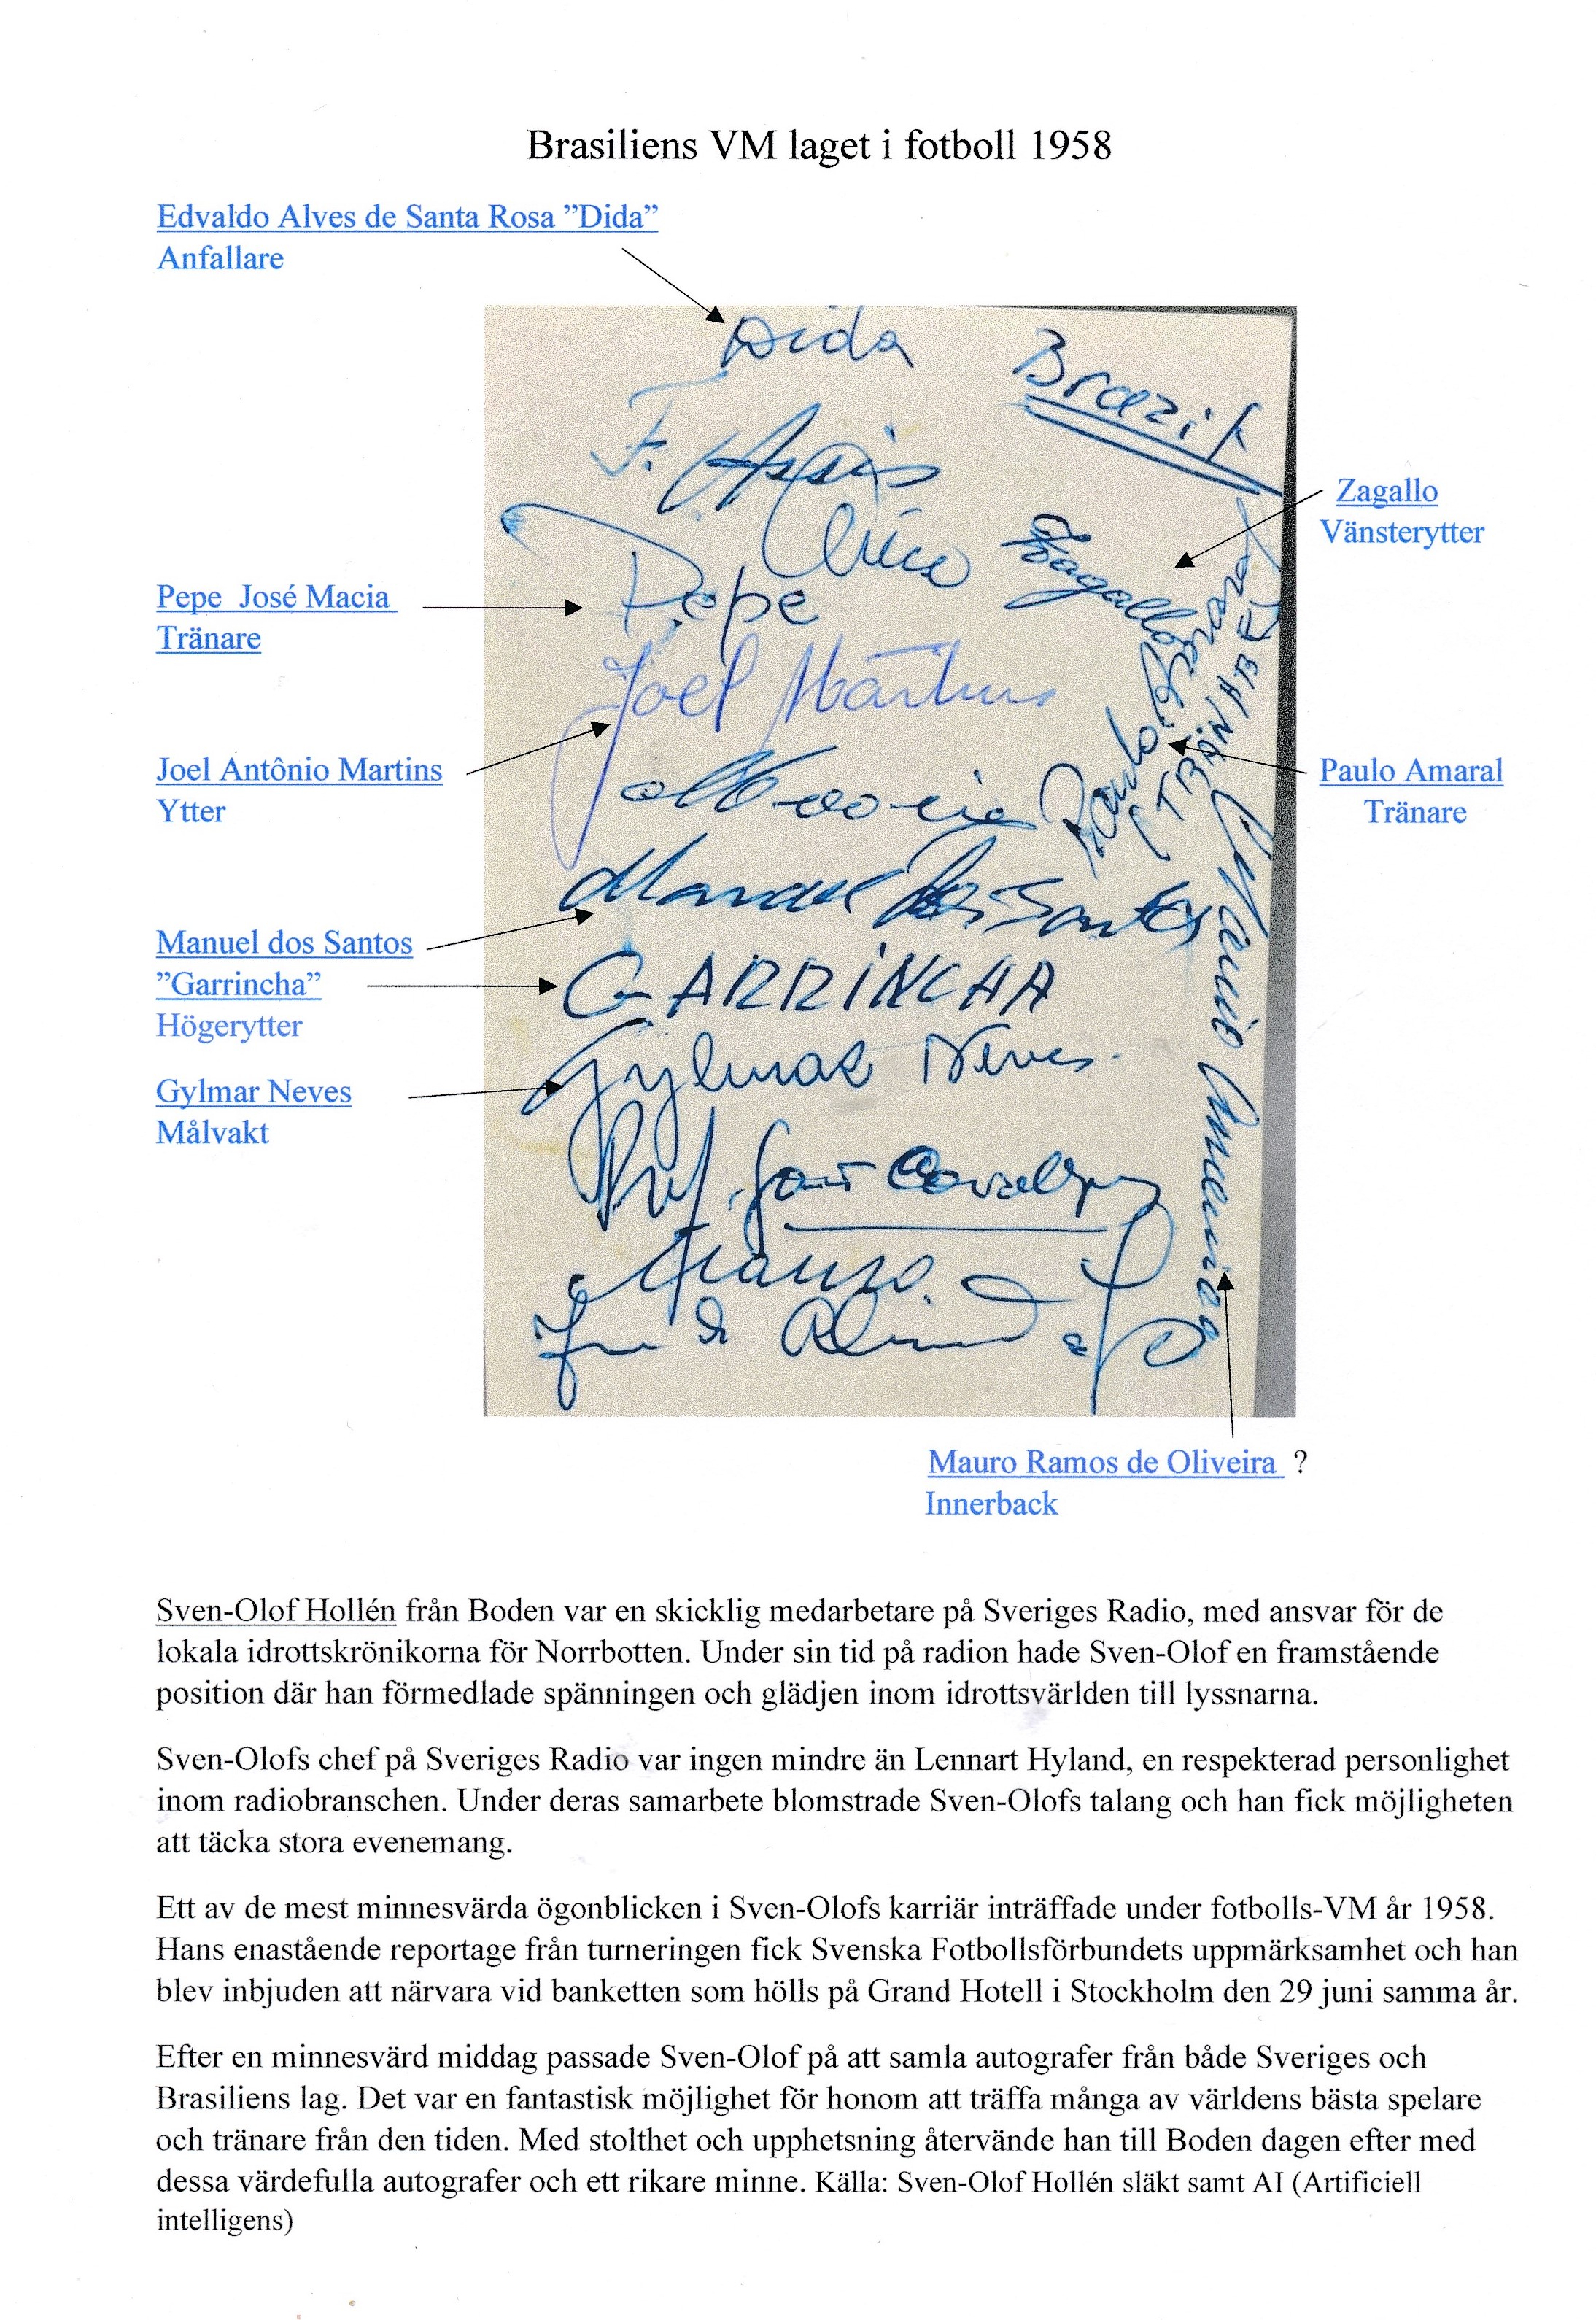 Brasiliens VM laget i fotboll 1958
Edvaldo Alves de Santa Rosa ”Dida”
Anfallare
Dida
Brazil
F. Assis
Zagallo
Vänsterytter
Zagallo
Pepe José Macia
Tränare
Pepe
Joel Martins
Joel Antônio Martins
Ytter
Paulo Amaral
Tränare
Paulo Amaral
(TRÄNARE)
Manuel dos Santos
Manuel dos Santos
”Garrincha”
Högerytter
GARRINCHA
Gylmar Neves
Målvakt
Gylmar Neves
Prof.
Mauro
Mauro Ramos de Oliveira ?
Innerback
Sven-Olof Hollén från Boden var en skicklig medarbetare på Sveriges Radio, med ansvar för de
lokala idrottskrönikorna för Norrbotten. Under sin tid på radion hade Sven-Olof en framstående
position där han förmedlade spänningen och glädjen inom idrottsvärlden till lyssnarna.
Sven-Olofs chef på Sveriges Radio var ingen mindre än Lennart Hyland, en respekterad personlighet
inom radiobranschen. Under deras samarbete blomstrade Sven-Olofs talang och han fick möjligheten
att täcka stora evenemang.
Ett av de mest minnesvärda ögonblicken i Sven-Olofs karriär inträffade under fotbolls-VM år 1958.
Hans enastående reportage från turneringen fick Svenska Fotbollsförbundets uppmärksamhet och han
blev inbjuden att närvara vid banketten som hölls på Grand Hotell i Stockholm den 29 juni samma år.
Efter en minnesvärd middag passade Sven-Olof på att samla autografer från både Sveriges och
Brasiliens lag. Det var en fantastisk möjlighet för honom att träffa många av världens bästa spelare
och tränare från den tiden. Med stolthet och upphetsning återvände han till Boden dagen efter med
dessa värdefulla autografer och ett rikare minne. Källa: Sven-Olof Hollén släkt samt AI (Artificiell
intelligens)